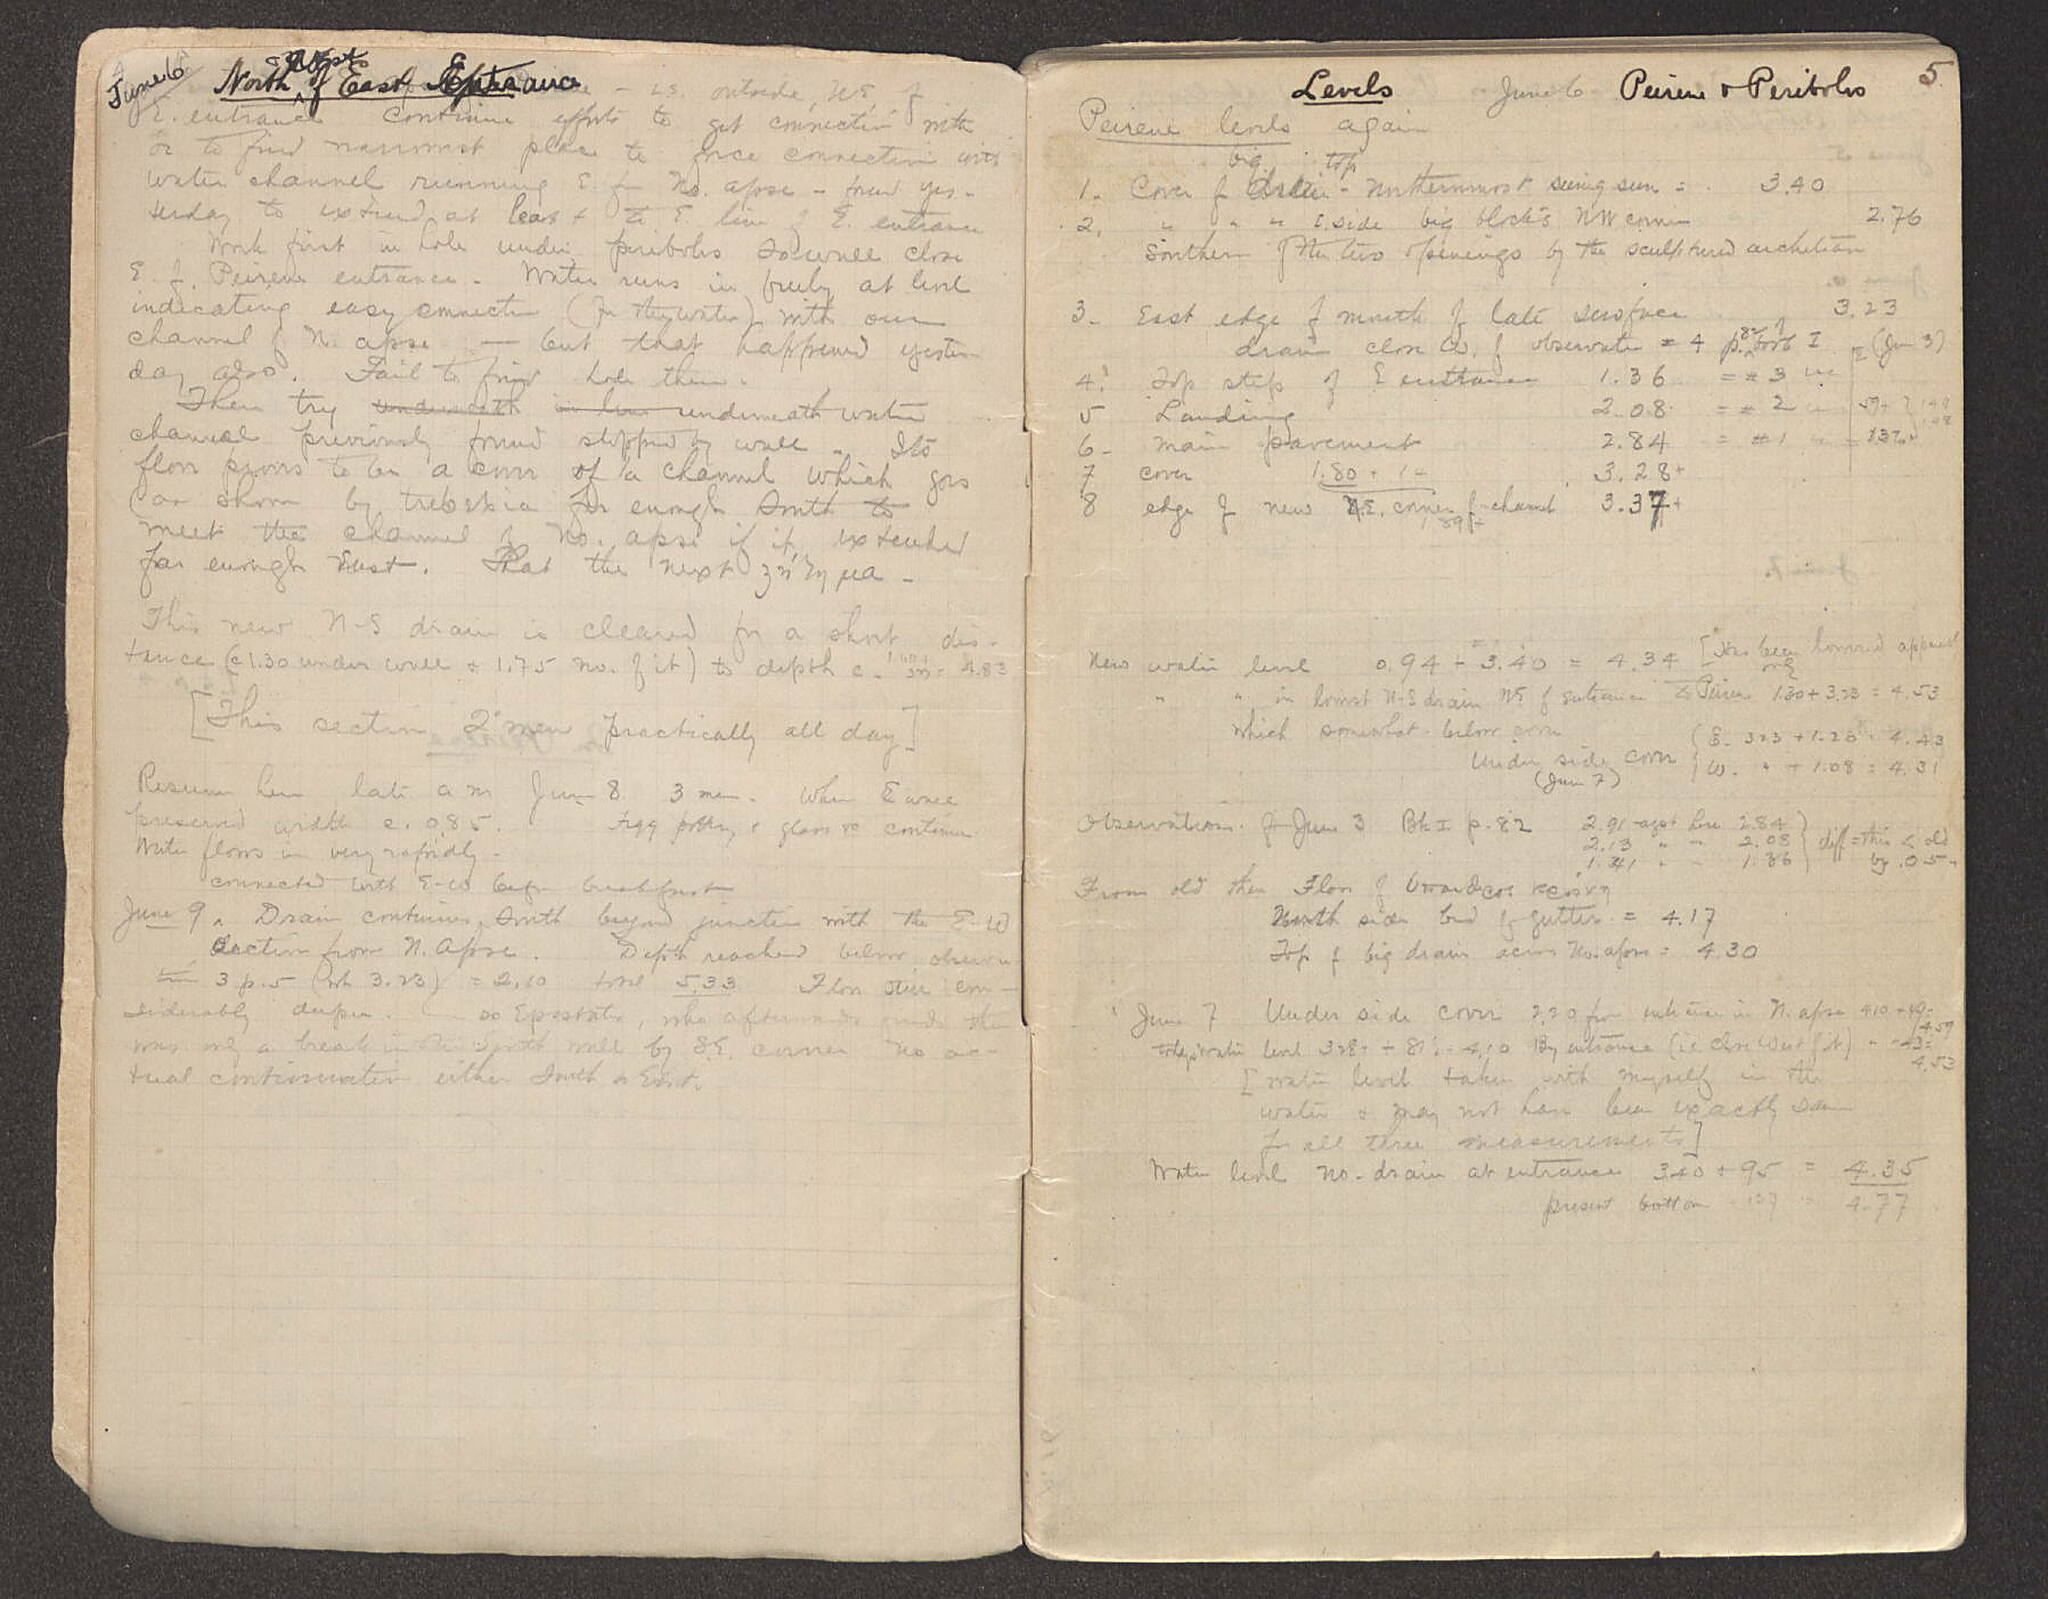 June 6
North of East Entrance
E. entrance continue efforts to get connection with
or to find narrowest place to force connection with
water channel running E. fr No. apse - found yes-
terday to extend at least to E. line of E. entrance
Work first in hole under peribolos So wall close
E. of Peirene entrance. Water runs in freely at level
indicating easy connection (for the water) with our
channel of N. apse — but that happened yester-
day also. Fail to find hole there.
Then try underneath in line underneath water
channel previously found stopped by wall. Its
floor proves to be a cover of a channel which goes
(as shown by trebexia far enough South to
meet the channel of No. apse if it extended
far enough East. That the next
This new N-S drain is cleared for a short dis-
tance (c 1.30 under wall + 1.75 no. of it) to depth c. = 4.83
[This section 2 men practically all day]
Resume here late a m June 8 3 men. When E wall
preserved width c. 0.85. Frgg pottery & glass &c continue
Water flows in very rapidly.
connected with E-W before breakfast
June 9. Drain continues South beyond junction with the E-W
section from N. Apse. Depth reached below observa-
tion 3 p. 5 (wh 3.23) = 2.10 total 5.33 Floor still con-
siderably deeper. so Epistates, who afterwards finds there
was only a break in the South wall by S.E. corner no ac-
tual continuation either South or East.
Levels June 6 Peirene & Peribolos 5
Peirene levels again
big top
1. Cover of drain - northernmost seeing sun = 3.40
2. " " " E. side big block's NW corner 2.76
Southern of the two openings by the sculptured architrave
3. East edge of mouth of late surface 3.23
drain close W. of observation # 4 p. 82 book I (June 3)
4. Top step of E entrance 1.36 = # 3
5 Landing 2.08 = # 2
6 - main pavement 2.84 = # 1
7 cover 1.80 + 3.28+
8 edge of new N.E. corner of channel 3.37+
New water level 0.94 + 3.40 = 4.34 [Has been lowered apparently
" " in lowest N-S drain NE of entrance to Peirene 1.30 + 3.23 = 4.53
which somewhat below cover
Under side cover { E. 323 + 1.20 = 4.43
(June 7) W. " + 1.08 = 4.31
Observations of June 3 Bk I p. 82 2.91 agst here 2.84
2.13 " " 2.08 } diff = this < old
1.41 " " 1.36 by .05
From old then Floor of
North side bed of gutter = 4.17
Top of big drain across No. apse = 4.30
June 7 Under side cover 2.20 from entrance in N. apse 410 + 49 =
4.59
today's water level 328+ + 81½ = 4.10 By entrance (i.e. close West of it) " + 43 =
4.53
[water level taken with myself in the
water & may not have been exactly same
for all three measurements]
Water level no. drain at entrance 340 + 95 = 4.35
present bottom 137 = 4.77